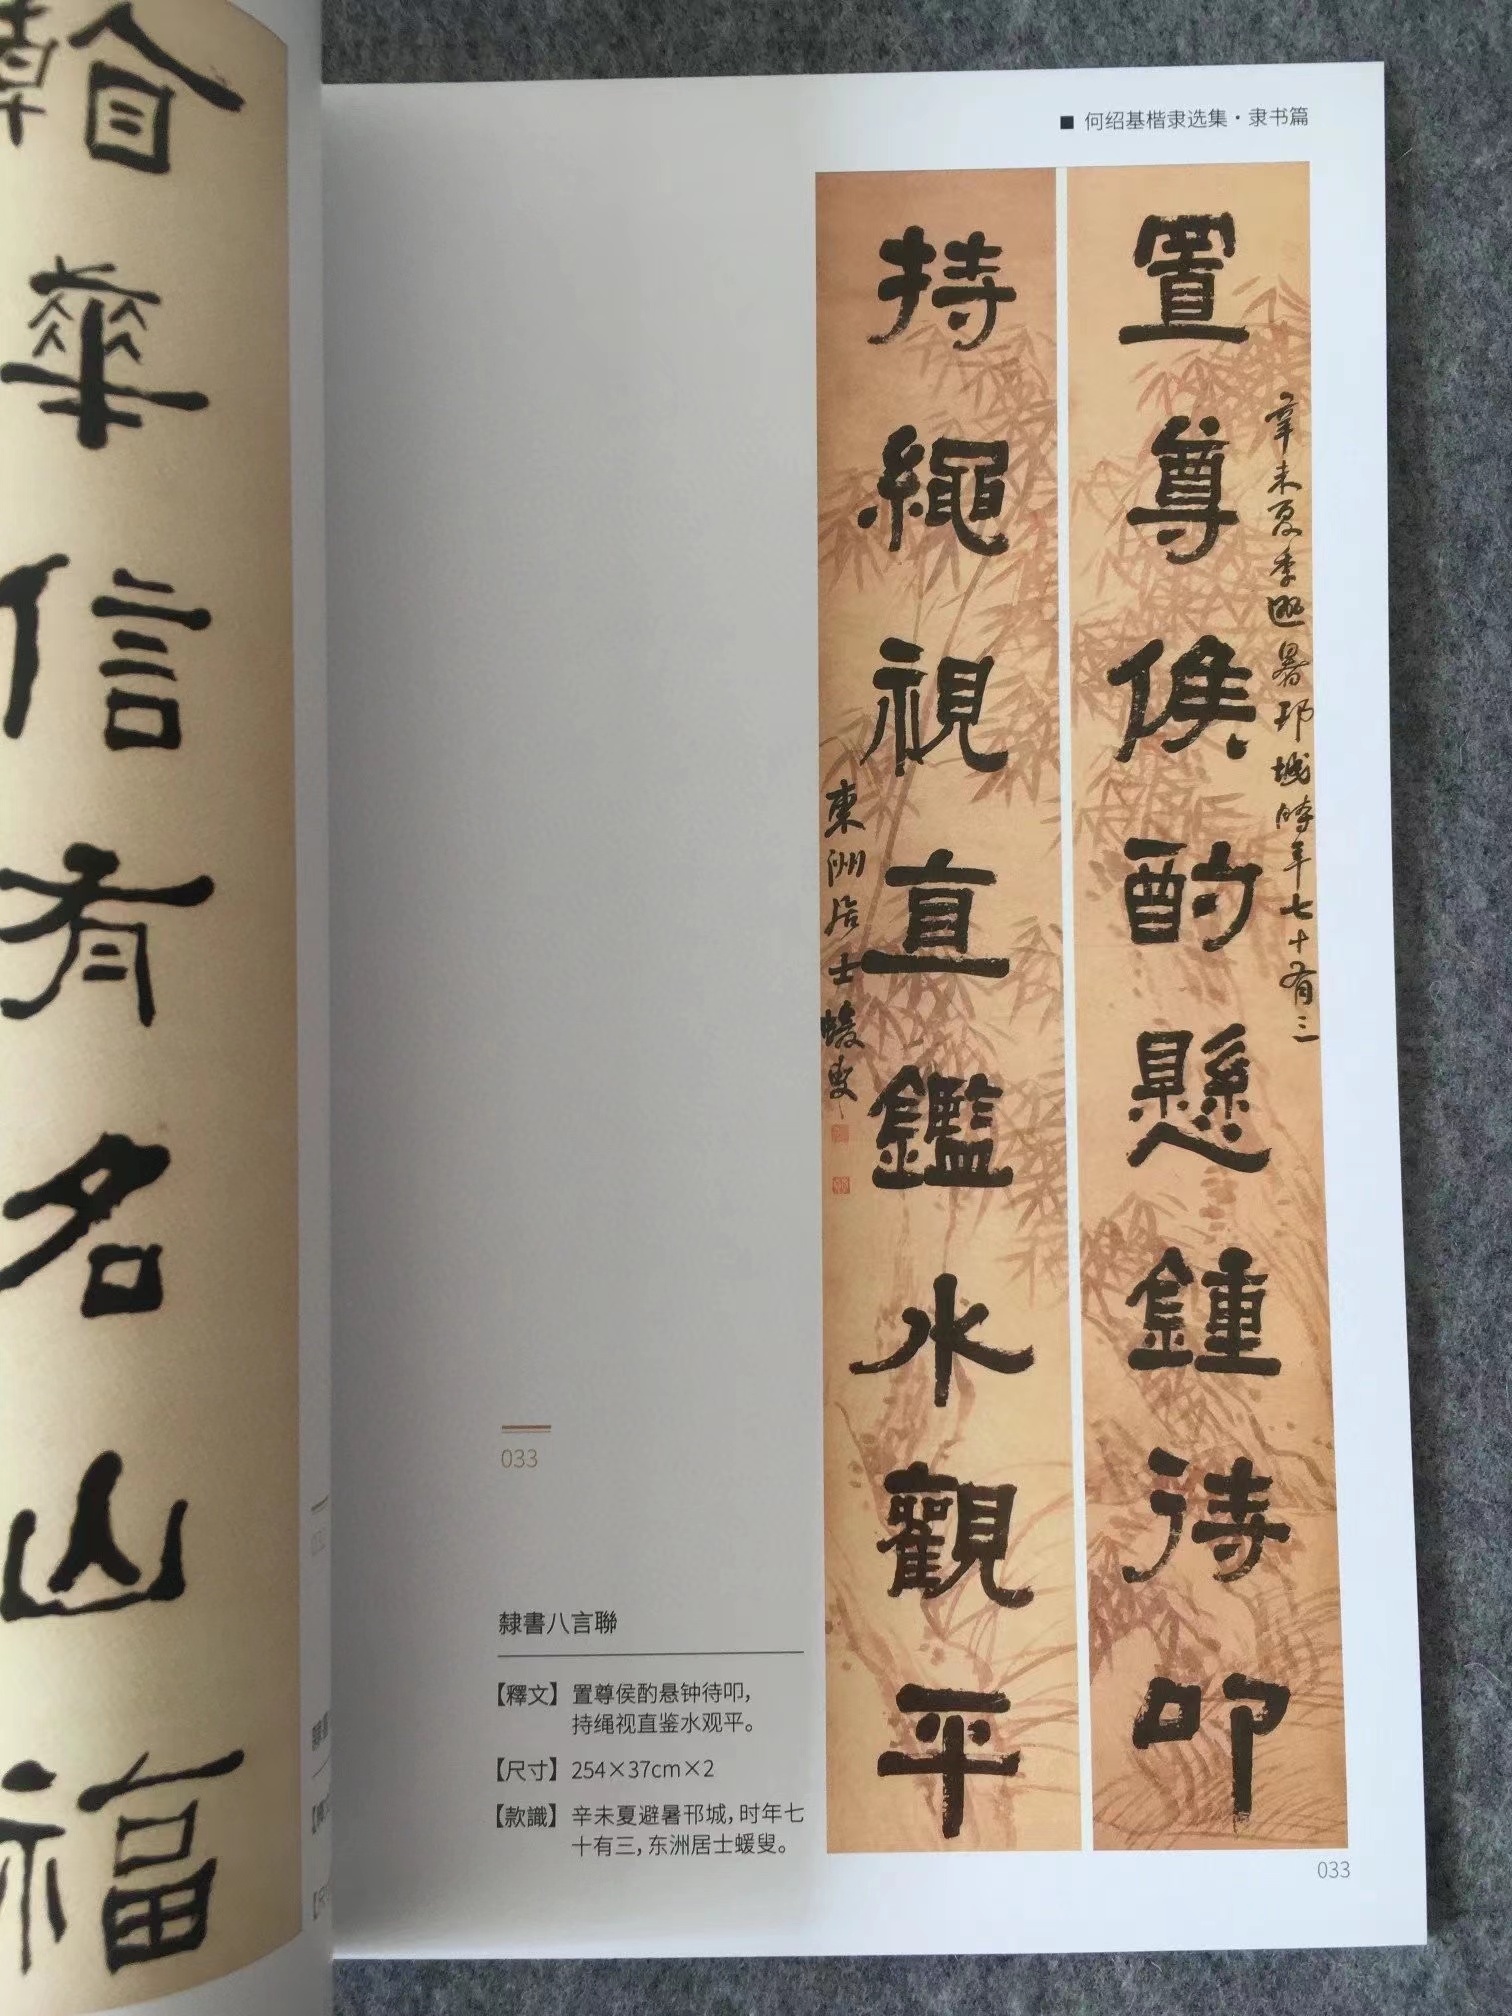 ■ 何绍基楷隶选集·隶书篇
置尊侯酌懸鍾待叩
辛未夏季避暑邗城時年七十有三
持繩視直鑑水觀平
東洲居士蝯叟
033
隸書八言聯
【釋文】置尊侯酌悬钟待叩，
持绳视直鉴水观平。
【尺寸】254×37cm×2
【款識】辛未夏避暑邗城，时年七
十有三，东洲居士蝯叟。
033
華有山
信名福